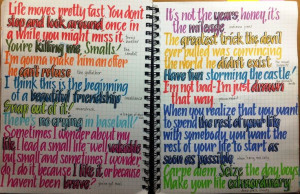 Life moves pretty fast. You don't
stop and look around once in
a while you might miss it.
You're killing me, Smalls!
I'm gonna make him an offer
he can't refuse
I think this is the beginning
of a beautiful friendship
Snap out of it!
There's no crying in baseball
Sometimes I wonder about my
life. I lead a small life-well valuable
but small and sometimes I wonder
do I do it because I like it, or because
I haven't been brave?
It's not the years, honey, it's
the mileage
The greatest trick the devil
ever pulled was convincing
the world he didn't exist
Have fun storming the castle!
I'm not bad-I'm just drawn
that way.
When you realize that you want
to spend the rest of your life
with somebody you want the
rest of your life to start as
soon as possible
Carpe diem. Seize the day boys
Make your life extraordinary